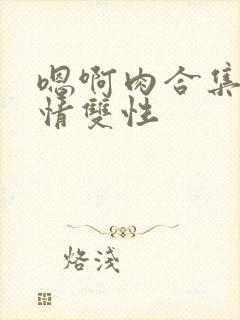 嗯啊肉合集
情雙性
烙淺